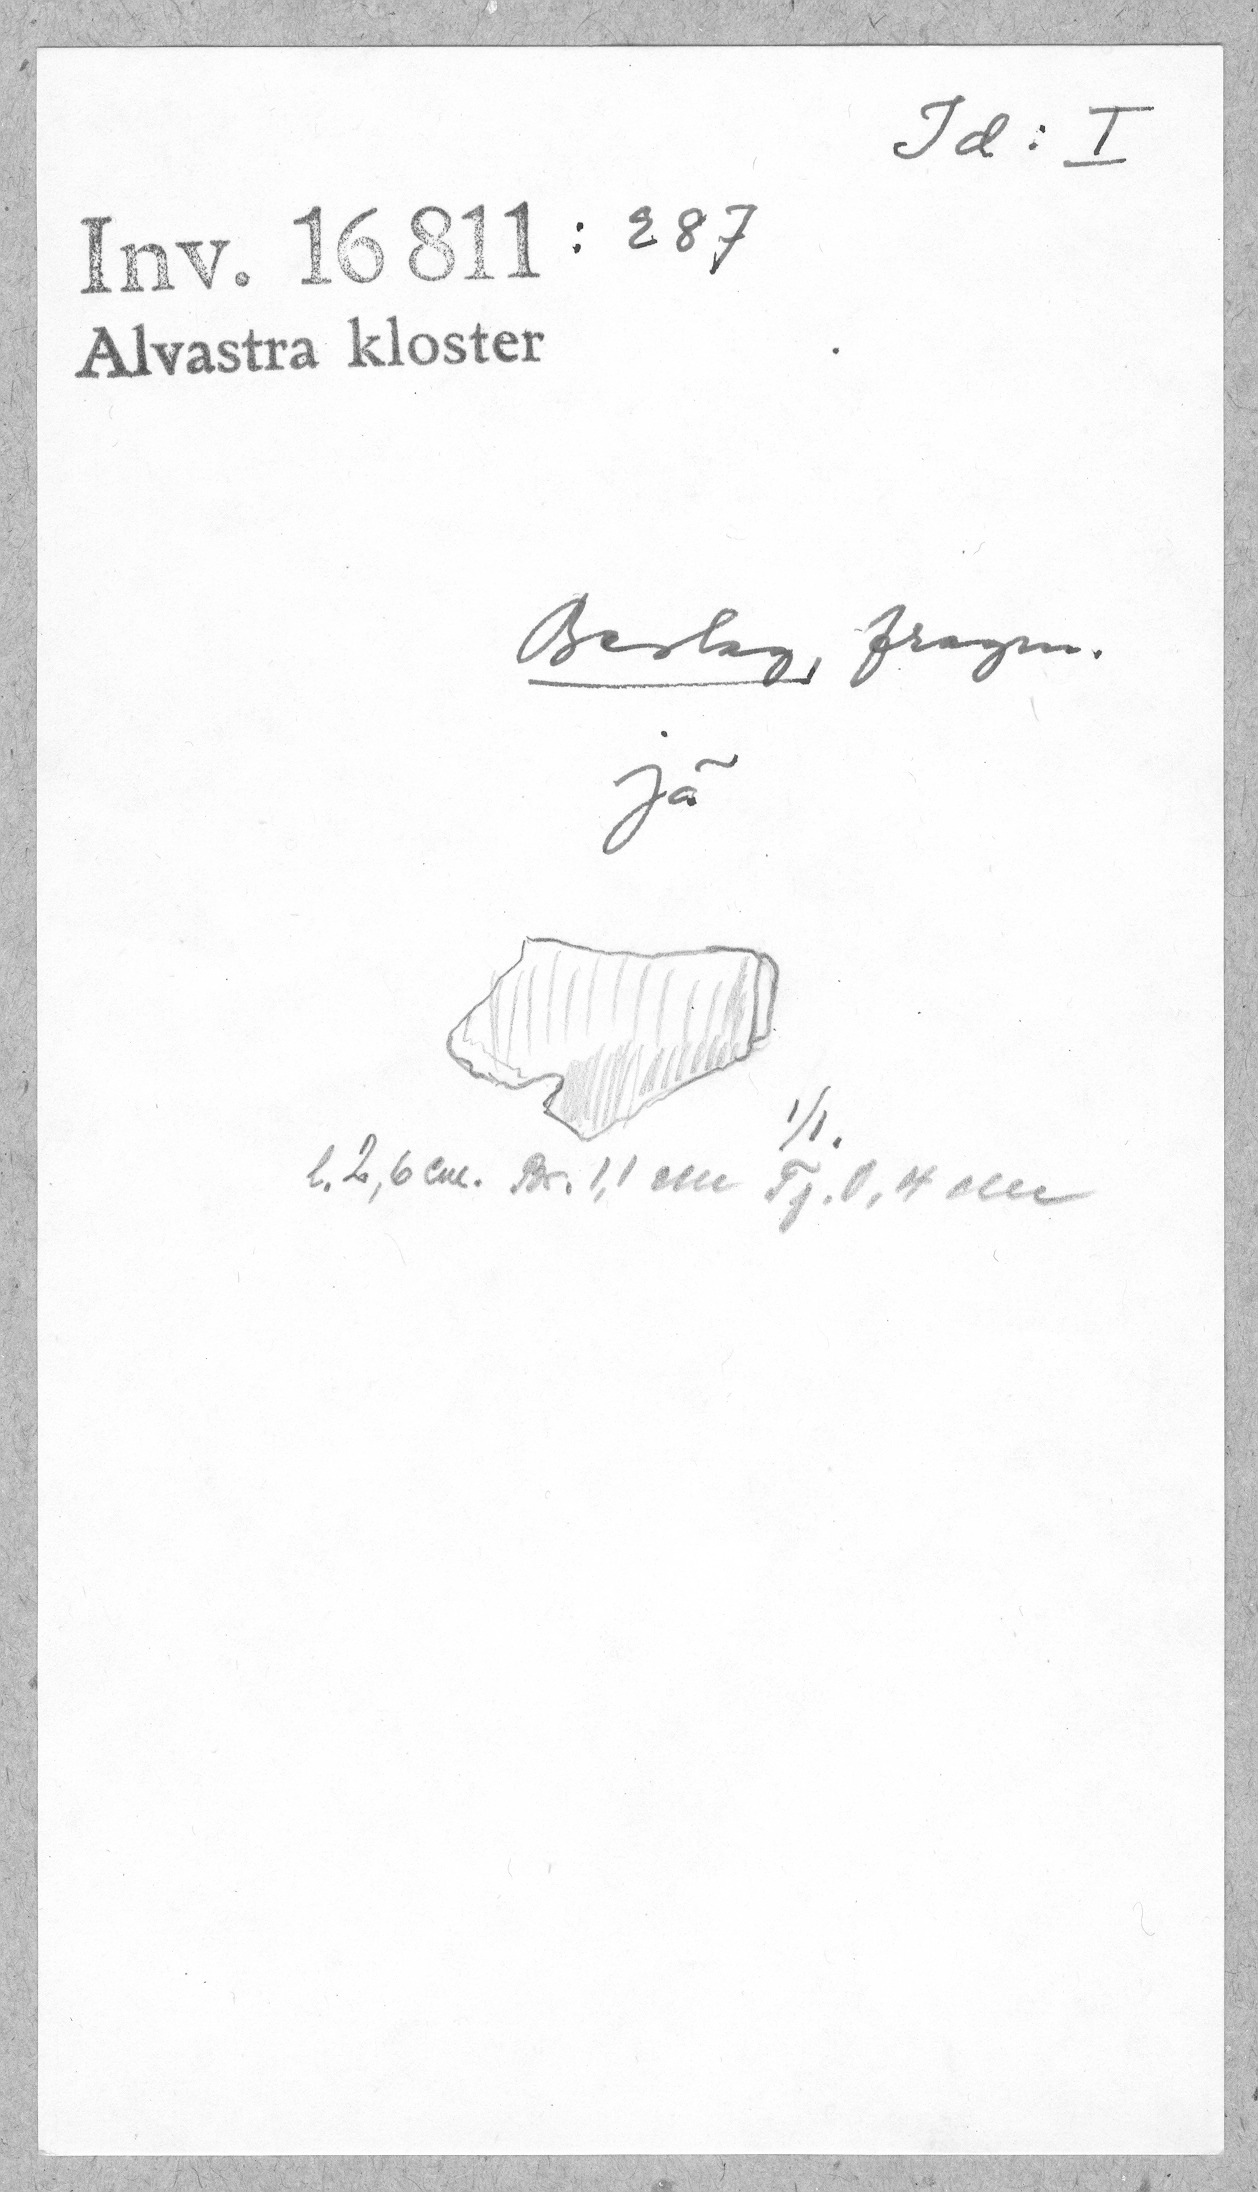 Id: I
Inv. 16 811 : 287
Alvastra kloster
Beslag, fragm.
jä
1/1.
l. 2,6 cm. Br. 1,1 cm Tj. 0,4 cm